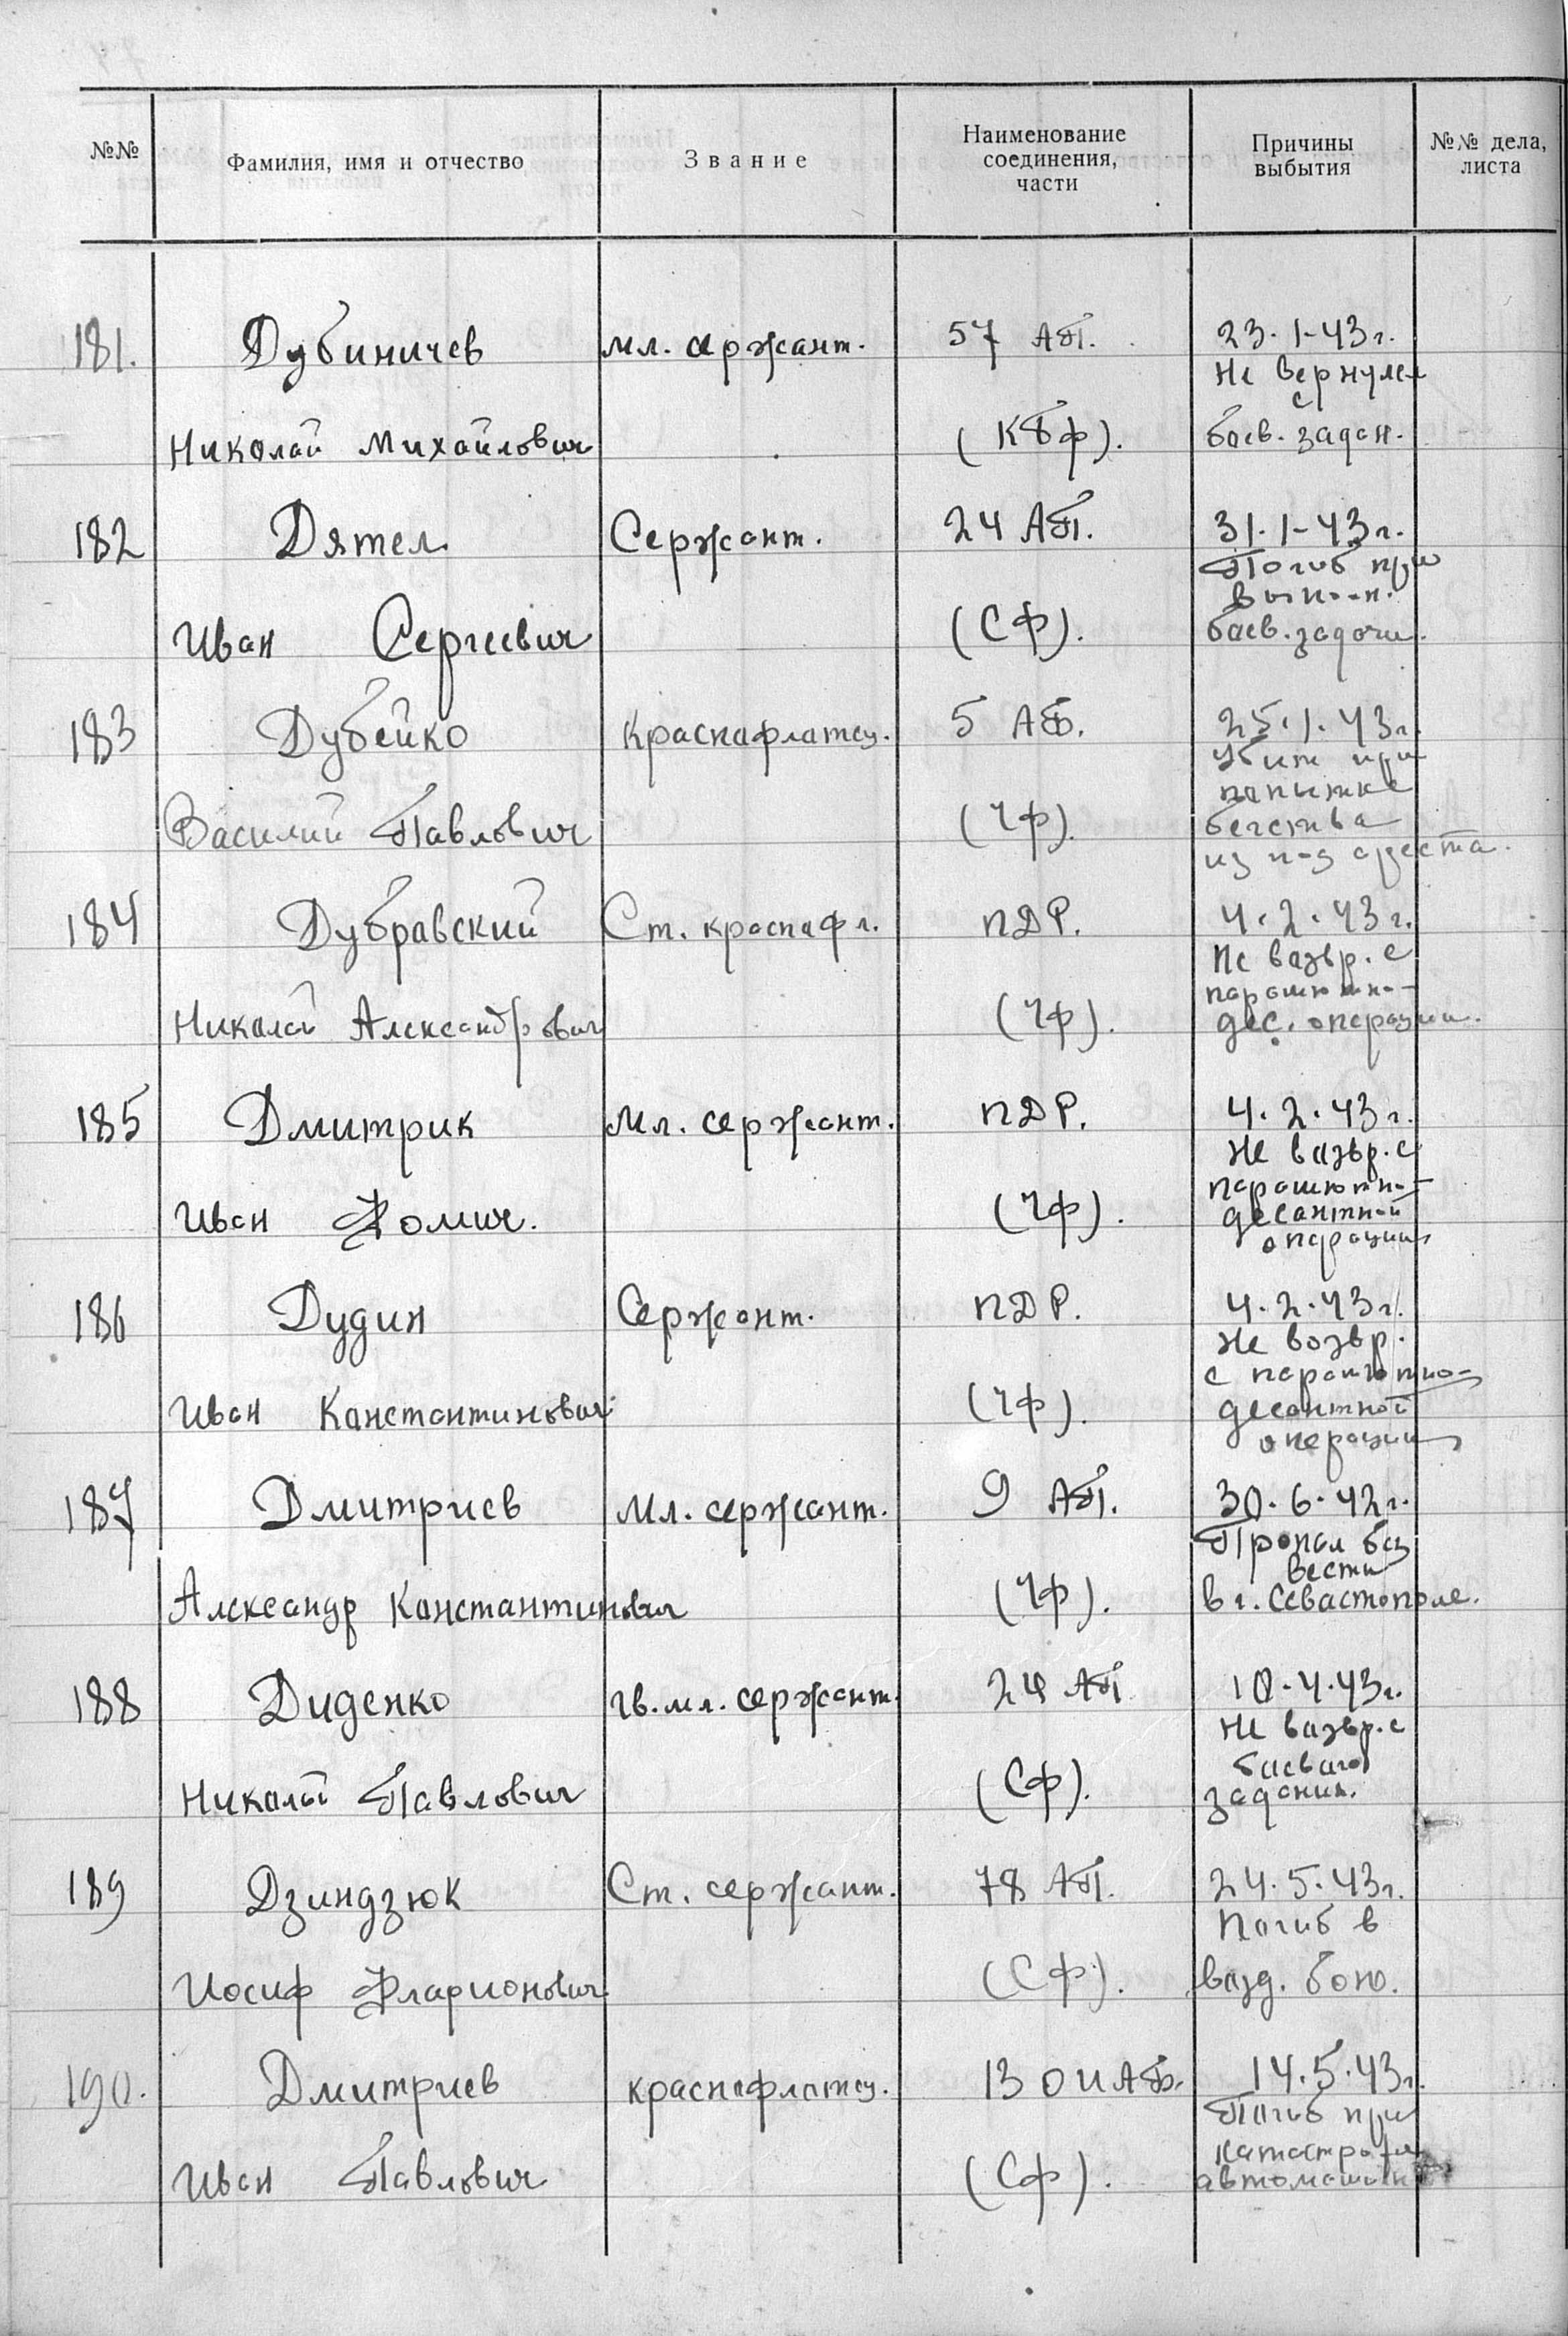 №№ Фамилия, имя и отчество Звание Наименование соединения, части Причины выбытия №№ дела, листа
181. Дубиничев мл. сержант. 57 АП. 23.1-43г.
Не вернулся
с
Николай Михайлович (КБФ). боев. задан.
182 Дятел Сержант. 24 АП. 31.1-43г.
Погиб при
выполн.
Иван Сергеевич (СФ). боев. задачи.
183 Дубейко Краснофлотец. 5 АБ. 25.1.43г.
Убит при
попытке
Василий Павлович (ЧФ). бегства
из под ареста.
184 Дубравский Ст. краснофл. ПДР. 4.2.43г.
Не возвр. с
парашютно-
Николай Александрович (ЧФ). дес. операции.
185 Дмитрик Мл. сержант. ПДР. 4.2.43г.
Не возвр. с
парашютно-
Иван Фомич. (ЧФ). десантной
операции
186 Дудин Сержант. ПДР. 4.2.43г.
Не возвр.
с парашютно-
Иван Константинович (ЧФ). десантной
операции
187 Дмитриев Мл. сержант. 9 АП. 30.6.42г.
Пропал без
вести
Александр Константинович (ЧФ). в г. Севастополе.
188 Диденко гв. мл. сержант. 24 АП 10.4.43г.
Не возвр. с
боевого
Николай Павлович (СФ). задания.
189 Дзиндзюк Ст. сержант. 78 АП. 24.5.43г.
Погиб в
Иосиф Фларионович (СФ). возд. бою.
190. Дмитриев краснофлотец. 13 ОИАБ. 14.5.43г.
Погиб при
катастрофе
Иван Павлович (СФ). автомашины